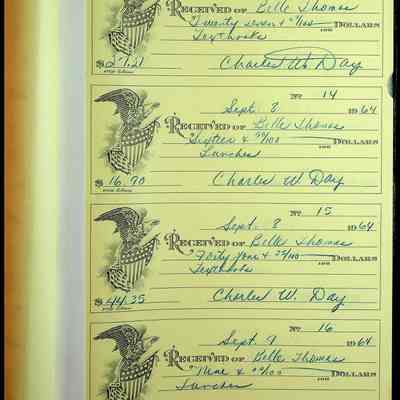 RECEIVED OF Belle Thomas
Twenty seven & 21/100 DOLLARS
Textbooks
$27.21 Charles W. Day
No 14
Sept. 8 1964
RECEIVED OF Belle Thomas
Sixteen & 90/100 DOLLARS
Lunches
$16.90 Charles W. Day
No 15
Sept. 8 1964
RECEIVED OF Belle Thomas
Forty four & 35/100 DOLLARS
Textbooks
$44.35 Charles W. Day
No 16
Sept. 9 1964
RECEIVED OF Belle Thomas
Nine & 00/100 DOLLARS
Lunches